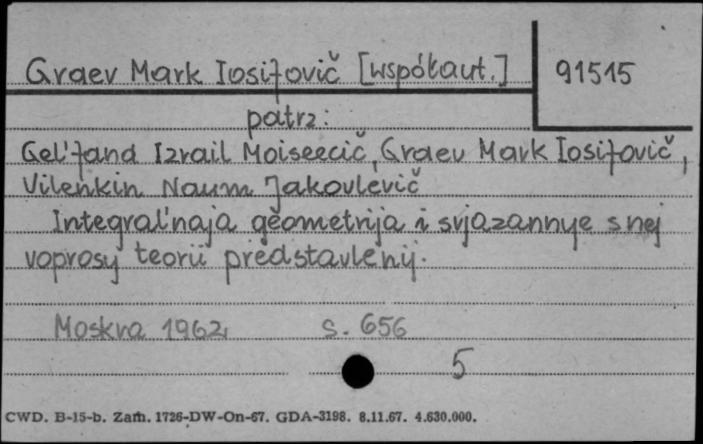 Graev Mark Iosifovič [współaut.] 91515
patrz:
Gel'fand Izrail Moiseecič, Graev Mark Iosifovič,
Vilenkin Naum Jakovlevič
Integral'naja geometrija i svjazannye s nej
voprosy teorii predstavlenij.
Moskva 1962 s. 656
5
CWD. B-15-b. Zam. 1726-DW-On-67. GDA-3198. 8.11.67. 4.630.000.